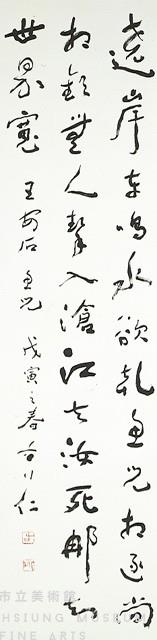 遶岸車鳴水欲乾魚兒相逐尚
相歡無人挈入滄江去汝死那知
世界寬 王安石魚兒 戊寅之春
市立美術館
HSIUNG MUSEUM
FINE ARTS